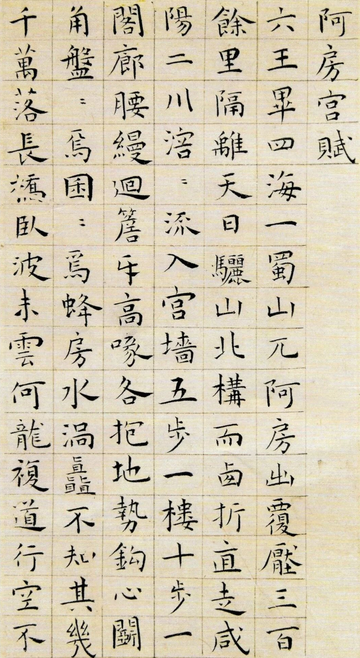 阿房宮賦
六王畢四海一蜀山兀阿房出覆壓三百
餘里隔離天日驪山北構而西折直走咸
陽二川溶〻流入宮墻五步一樓十步一
閣廊腰縵迴簷牙高啄各抱地勢鈎心鬭
角盤〻焉困〻焉蜂房水渦矗不知其幾
千萬落長橋臥波未雲何龍複道行空不